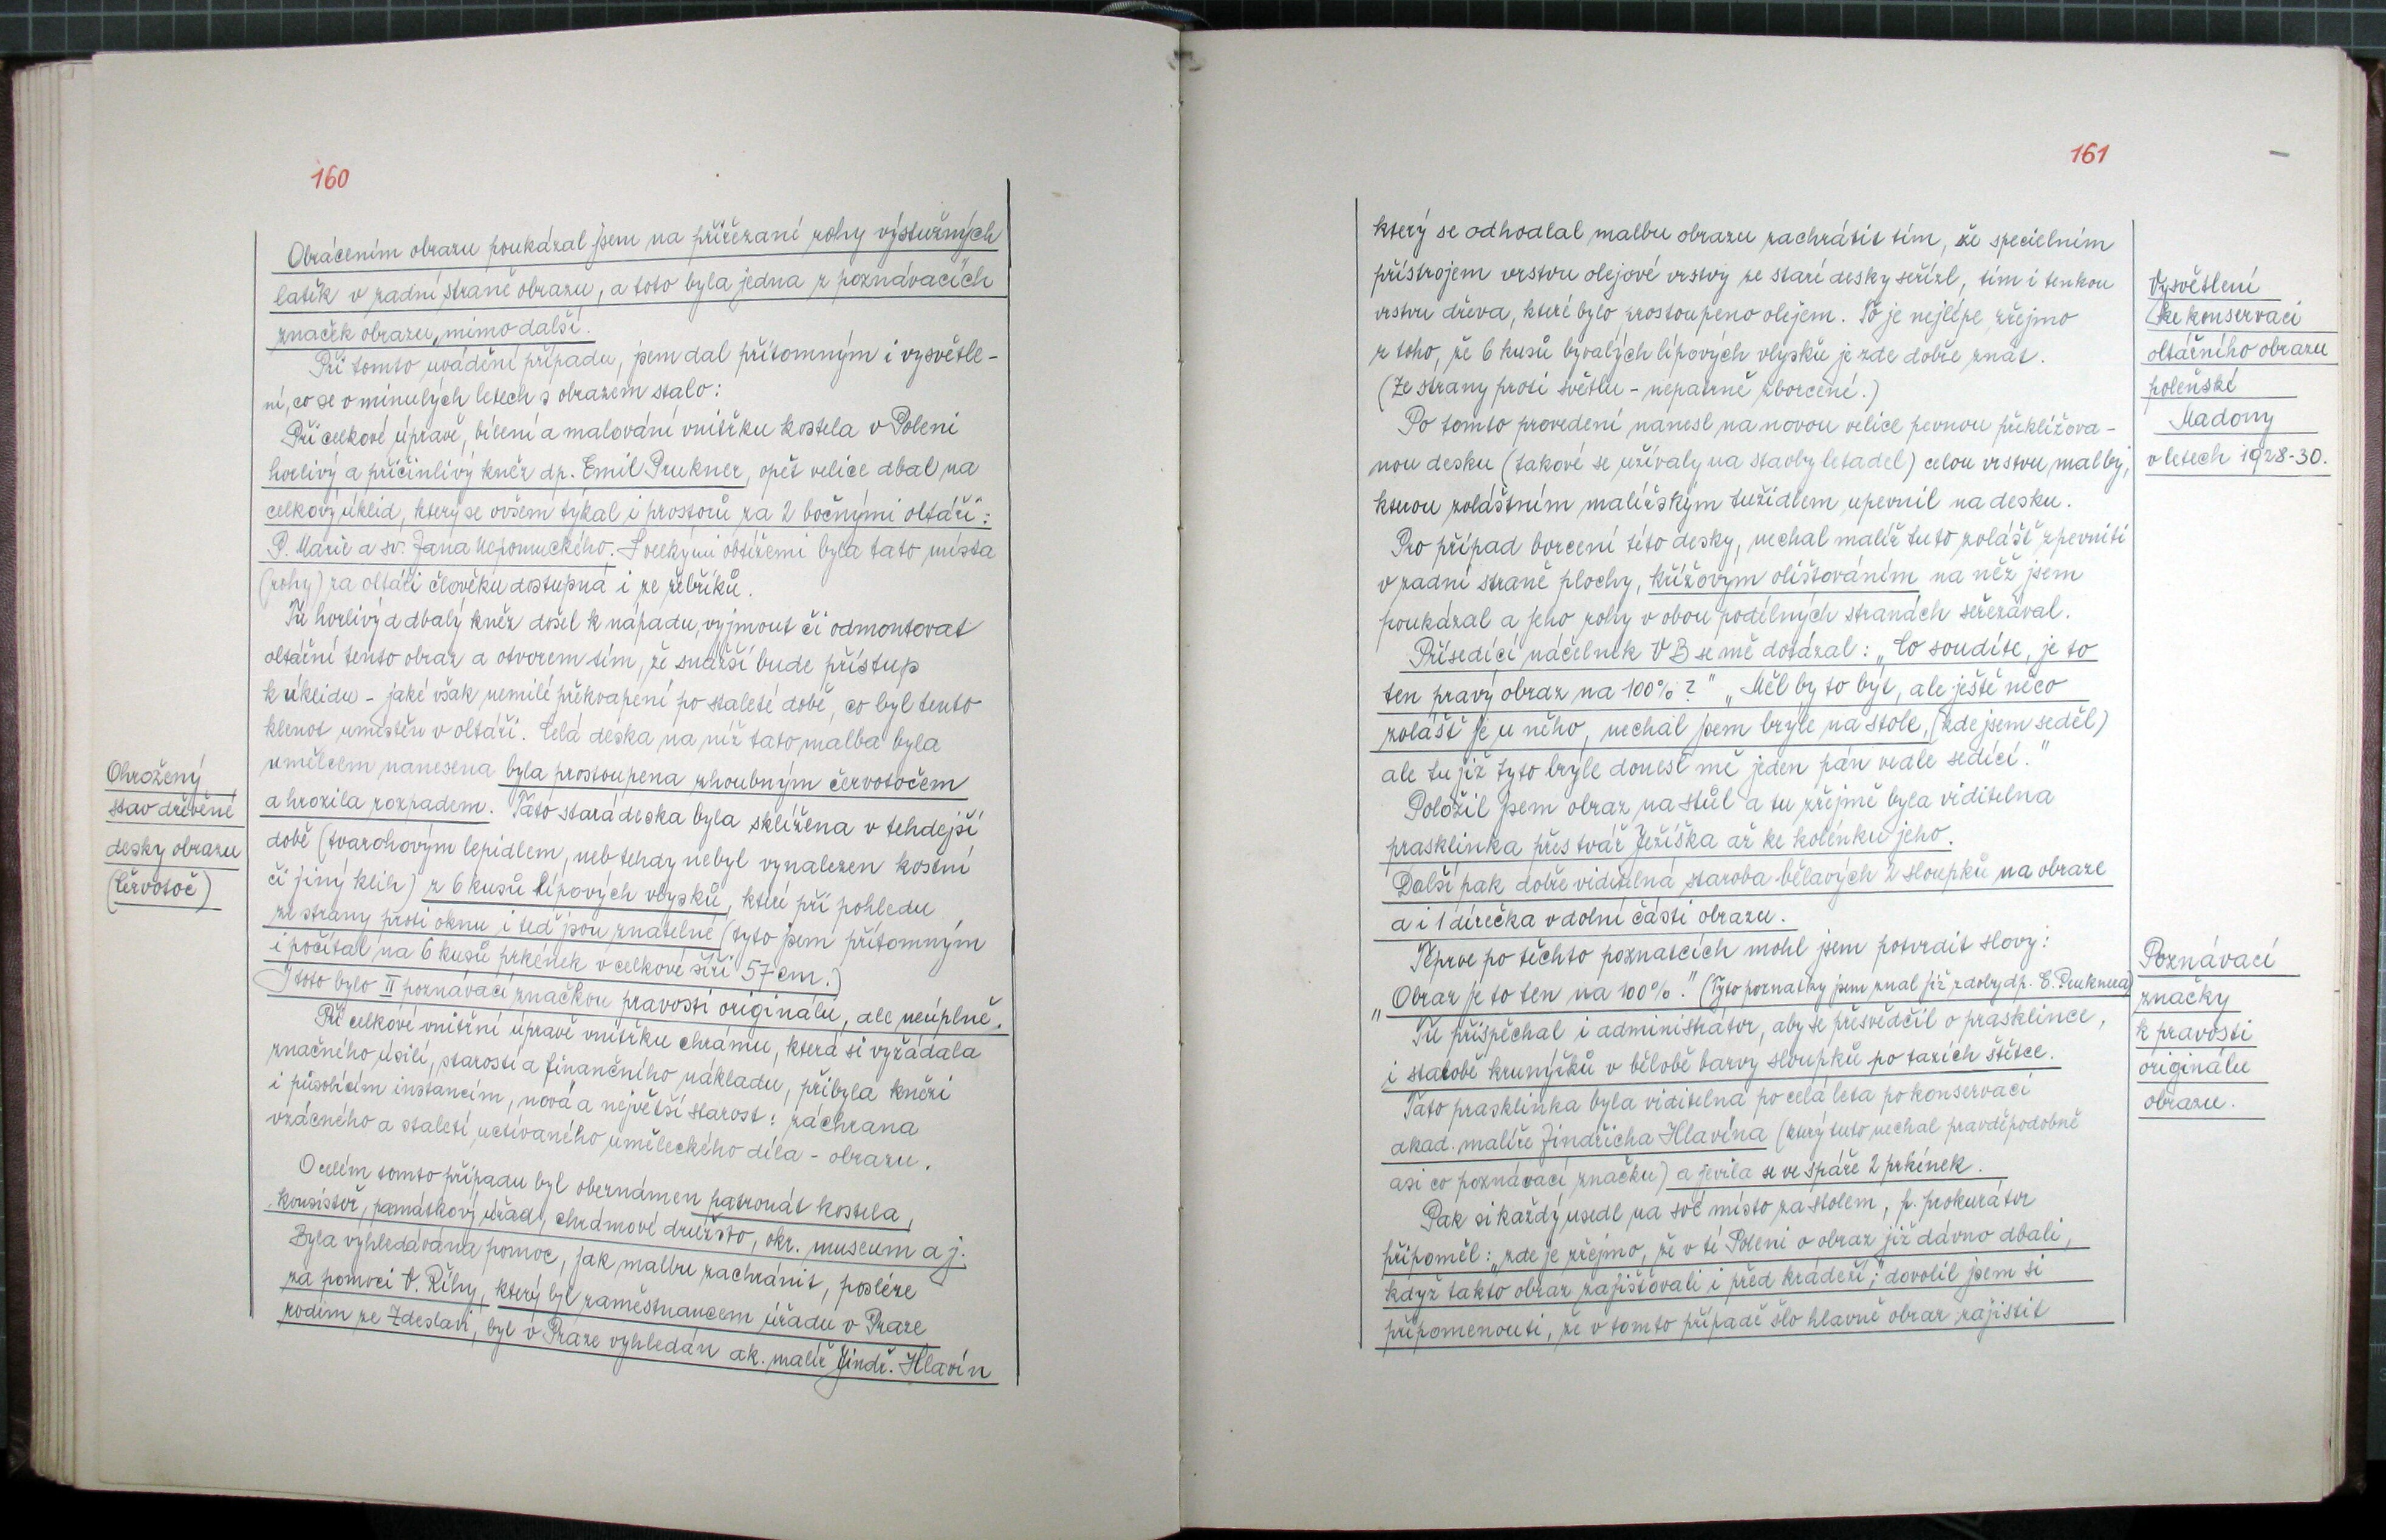 160
Obrácením obrazu poukázal jsem na přiřezané rohy výstužných
latěk v zadní straně obrazu, a toto byla jedna z poznávacích
značek obrazu, mimo další.
Při tomto uvádění případu, jsem dal přítomným i vysvětle-
ní, co se v minulých letech s obrazem stalo:
Při celkové úpravě, bílení a malování vnitřku kostela v Poleni
horlivý a přičinlivý kněz dp. Emil Prukner, opět velice dbal na
celkový úklid, který se ovšem týkal i prostorů za 2 bočnými oltáři:
P. Marie a sv. Jana Nepomuckého. S velkými obtížemi byla tato místa
(rohy) za oltáři člověku dostupná i ze žebříků.
Tu horlivý a dbalý kněz došel k nápadu, vyjmout či odmontovat
oltářní tento obraz a otvorem tím, že snažší bude přístup
k úklidu - jaké však nemilé překvapení po staleté době, co byl tento
klenot umístěn v oltáři. Celá deska na níž tato malba byla
umělcem nanesena byla prostoupena zhoubným červotočem
a hrozila rozpadem. Tato stará deska byla sklížena v tehdejší
době (tvarohovým lepidlem, neb tehdy nebyl vynalezen kostní
či jiný klih) z 6 kusů lípových vlysků, které při pohledu
ze strany proti oknu i teď jsou znatelné (tyto jsem přítomným
i počítal na 6 kusů prkének v celkové šíři 57 cm.)
I toto bylo II poznávací značkou pravosti originálu, ale neúplně.
Při celkové vnitřní úpravě vnitřku chrámu, která si vyžádala
značného úsilí, starostí a finančního nákladu, přibyla knězi
i působícím instancím, nová a největší starost: záchrana
vzácného a staletí uctívaného uměleckého díla - obrazu.
O celém tomto případu byl obeznámen patronát kostela,
konsistoř, památkový úřad, chrámové družstvo, okr. museum a j.
Byla vyhledávána pomoc, jak malbu zachránit, posléze
za pomoci V. Říhy, který byl zaměstnancem úřadu v Praze
rodim ze Zdeslavi, byl v Praze vyhledán ak. malíř Jindř. Hlavín
Ohrožený
stav dřevěné
desky obrazu
(červotoč)
161
který se odhodlal malbu obrazu zachrátit tím, že specielním
přístrojem vrstvu olejové vrstvy ze staré desky seřízl, tím i tenkou
vrstvu dřeva, které bylo prostoupeno olejem. To je nejlépe zřejmo
z toho, že 6 kusů bývalých lípových vlysků je zde dobře znát.
(Ze strany proti světlu - nepatrně zborcené.)
Po tomto provedení nanesl na novou velice pevnou překližova-
nou desku (takové se užívaly na stavby letadel) celou vrstvu malby,
kterou zvláštním malířským tužidlem upevnil na desku.
Pro případ borcení této desky, nechal malíř tuto zvlášť zpevniti
v zadní straně plochy, křížovým olištováním na něž jsem
poukázal a jeho rohy v obou podélných stranách seřezával.
Přísedící náčelník VB se mě dotázal: „Co soudíte, je to
ten pravý obraz na 100%?" „Měl by to být, ale ještě něco
zvlášť je u něho, nechal jsem brýle na stole, (kde jsem seděl)
ale tu již tyto brýle donesl mě jeden pán vedle sedící."
Položil jsem obraz na stůl a tu zřejmě byla viditelna
prasklinka přes tvář Ježíška až ke kolénku jeho.
Další pak dobře viditelná staroba bělavých 2 sloupků na obraze
a i 1 dírečka v dolní části obrazu.
Teprve po těchto poznatcích mohl jsem potvrdit slovy:
„Obraz je to ten na 100%." (Tyto poznatky jsem znal již z doby dp. E. Pruknera)
Tu přispěchal i administrátor, aby se přesvědčil o prasklince,
i starobě krunýřků v bělobě barvy sloupků po tazích štětce.
Tato prasklinka byla viditelná po celá léta po konservaci
akad. malíře Jindřicha Hlavína (který tuto nechal pravděpodobně
asi co poznávací značku) a jevila se ve spáře 2 prkének.
Pak si každý usedl na své místo za stolem, p. prokurátor
připoměl: „zde je zřejmo, že v té Poleni o obraz již dávno dbali,
když takto obraz zajišťovali i před krádeží"; dovolil jsem si
připomenouti, že v tomto případě šlo hlavně obraz zajistit
Vysvětlení
(ke konservaci
oltářního obrazu
poleňské
Madony
v letech 1928-30.
Poznávací
značky
k pravosti
originálu
obrazu.